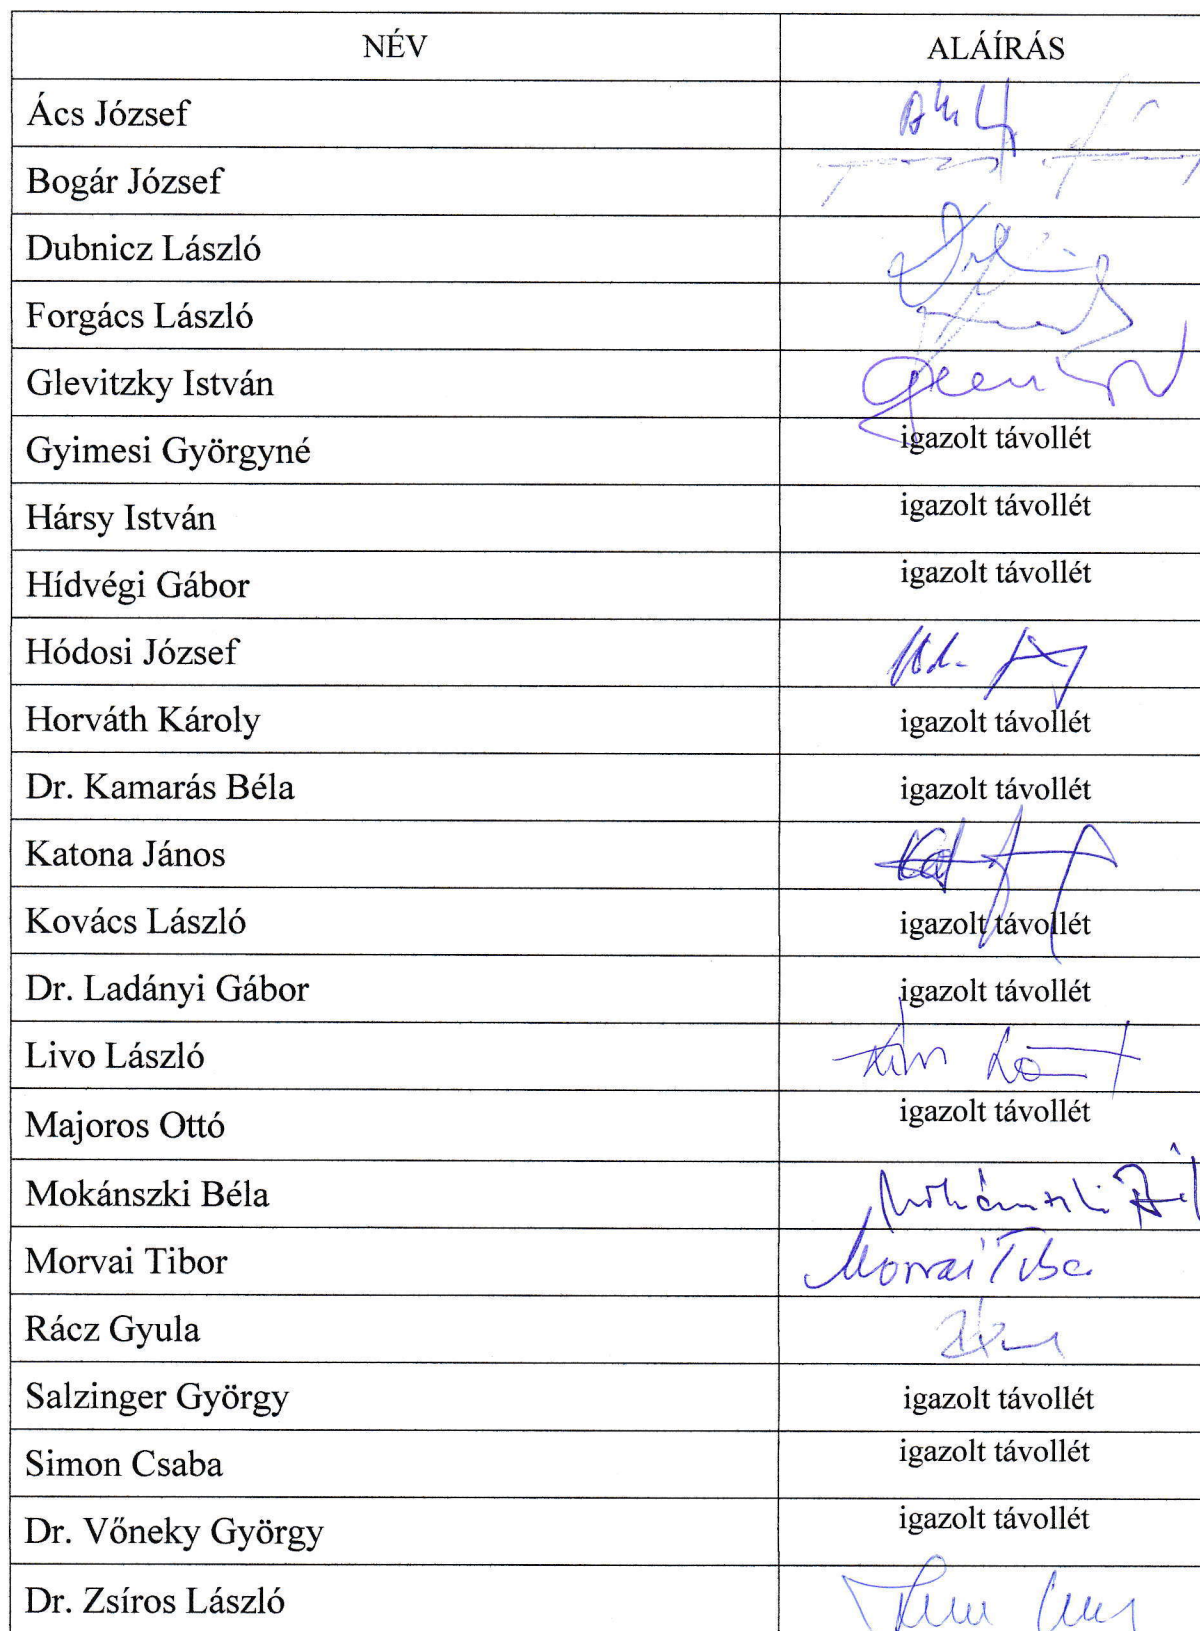 NÉV ALÁÍRÁS
Ács József
Bogár József
Dubnicz László
Forgács László
Glevitzky István
Gyimesi Györgyné igazolt távollét
Hársy István igazolt távollét
Hídvégi Gábor igazolt távollét
Hódosi József
Horváth Károly igazolt távollét
Dr. Kamarás Béla igazolt távollét
Katona János
Kovács László igazolt távollét
Dr. Ladányi Gábor igazolt távollét
Livo László
Majoros Ottó igazolt távollét
Mokánszki Béla
Morvai Tibor Morvai Tibor
Rácz Gyula
Salzinger György igazolt távollét
Simon Csaba igazolt távollét
Dr. Vőneky György igazolt távollét
Dr. Zsíros László